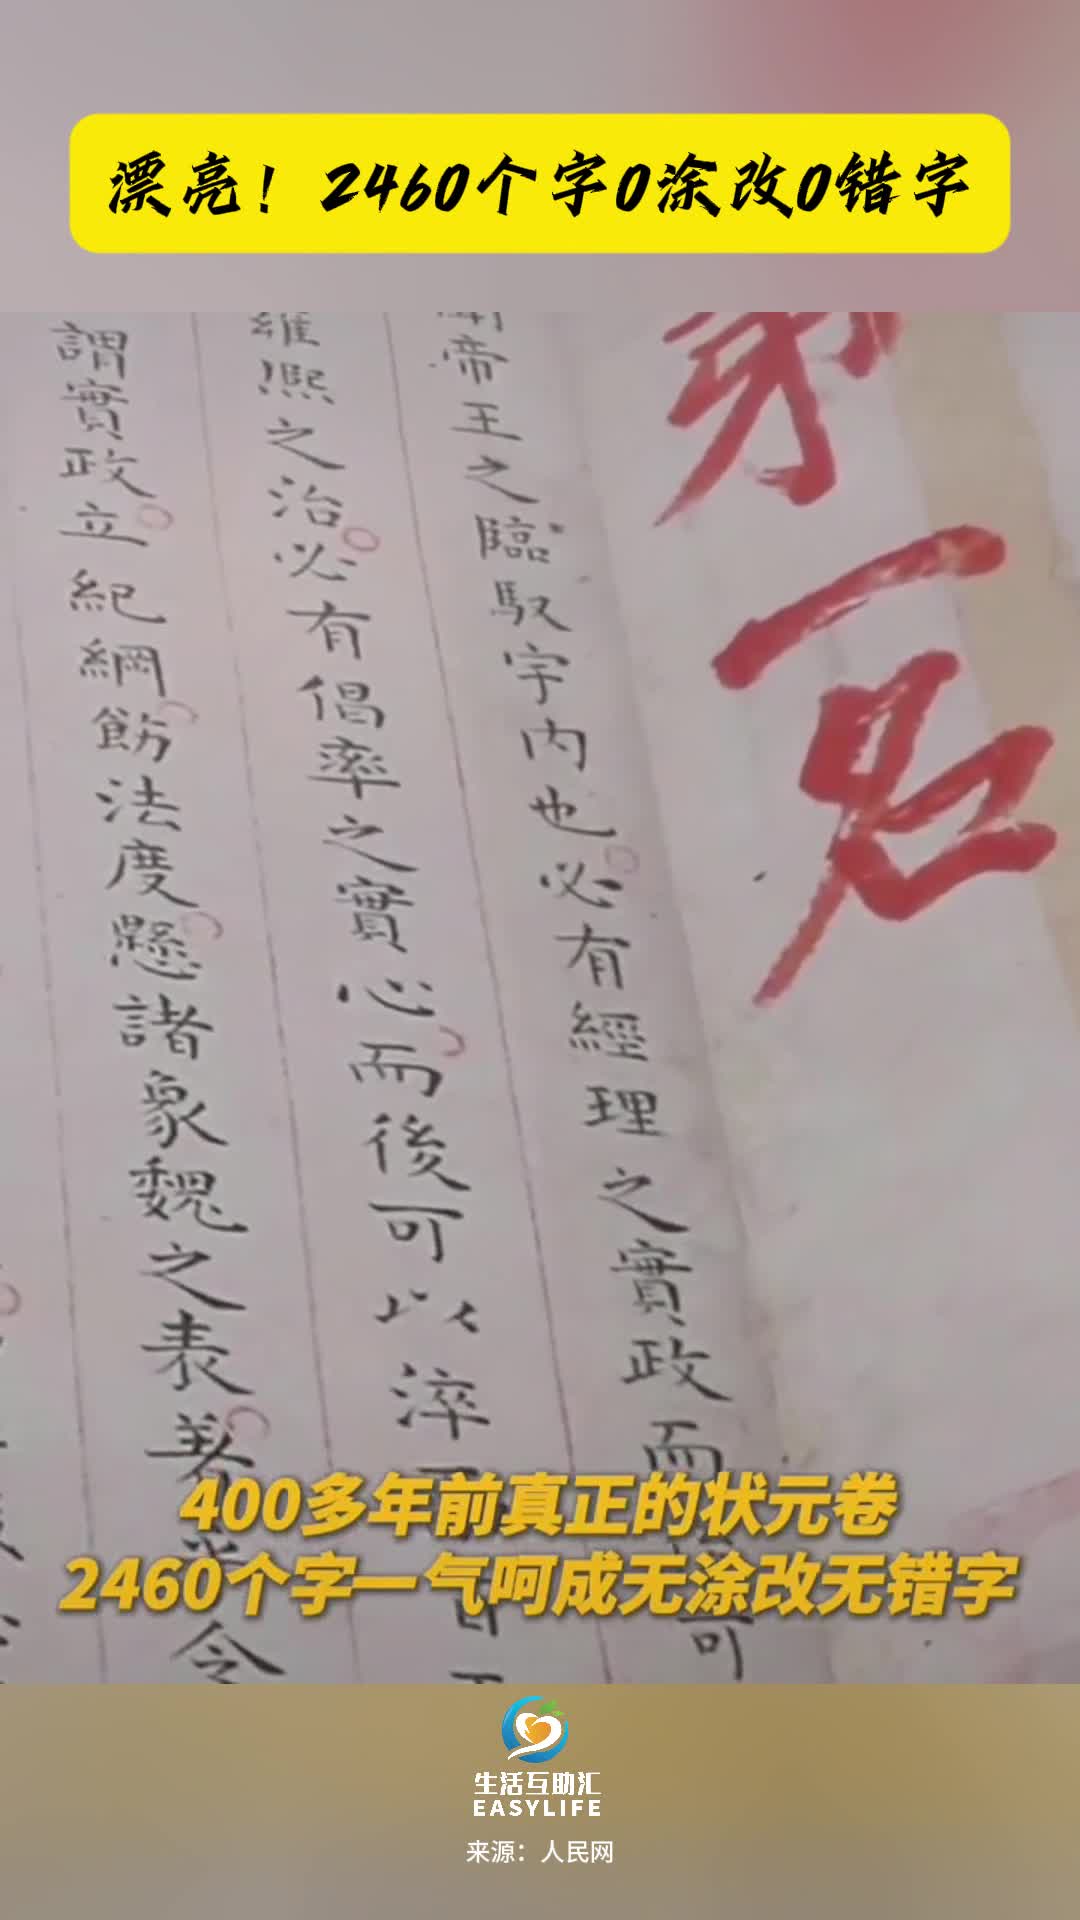 漂亮！2460个字0涂改0错字
第一名
帝王之臨馭宇内也必有經理之實政而
可
雍熙之治必有倡率之實心而後可以淬
謂實政立紀綱飭法度懸諸象魏之表著
令
400多年前真正的状元卷
2460个字一气呵成无涂改无错字
生活互助汇
EASYLIFE
来源：人民网